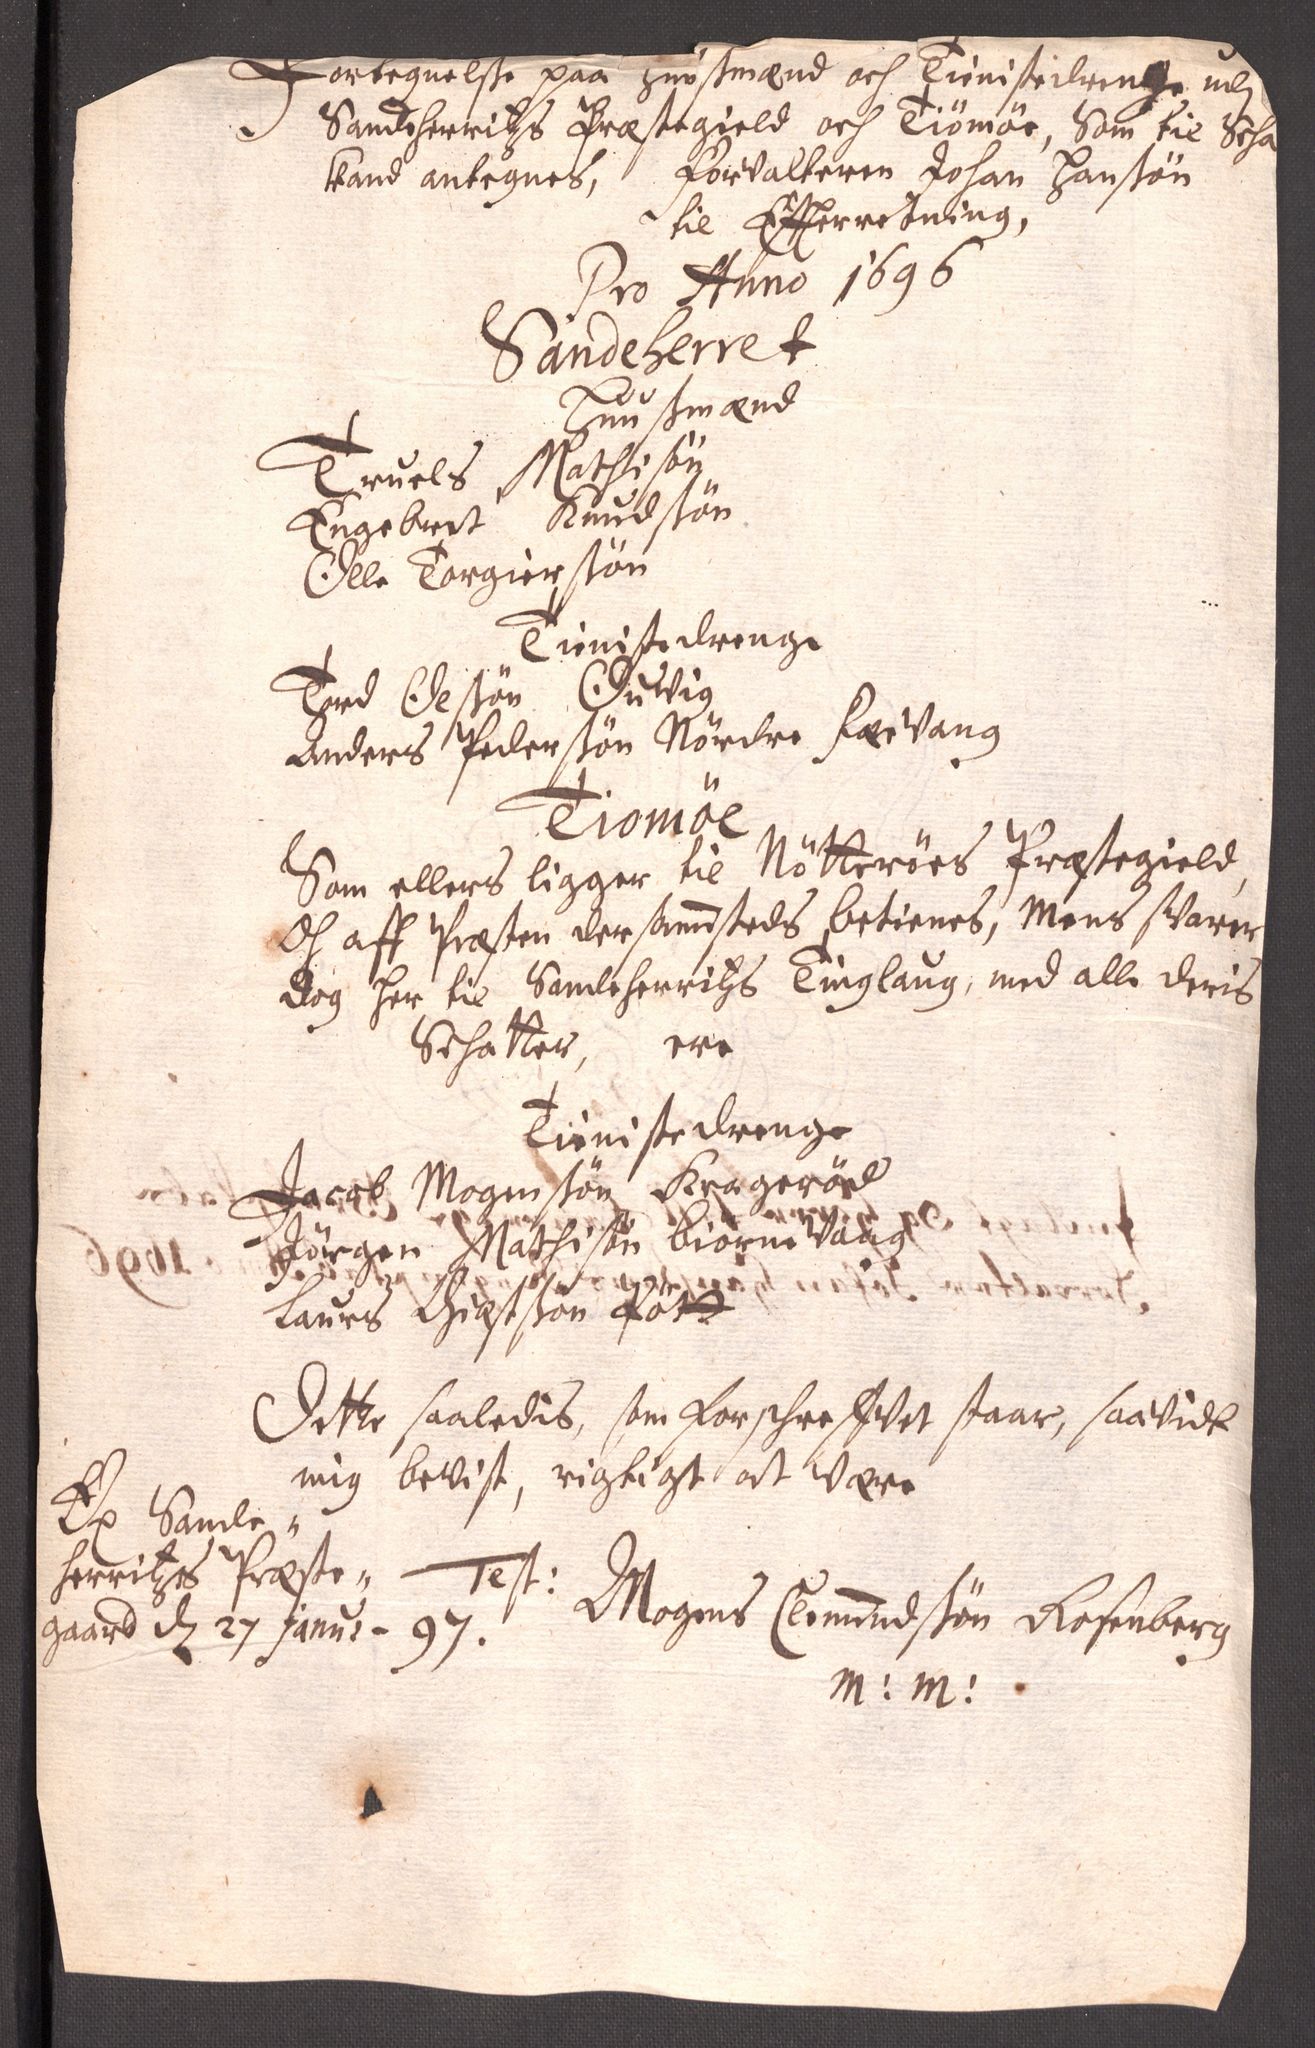 Fortegnelse paa Huusmænd och Tienistedrenge udj
Sandeherritzs Præstegield och Tiömöe, Som til Scha
kand antegnes, Forvalteren Johan Hansön
til Effterretning,
Pro Anno 1696
Sandeherret
Huusmænd
Truels Mathisön
Engebret Knudsön
Olle Torgiersön
Tienistedrenge
Tord Olsön
Anders Pedersön Nördre Fævang
Tiomöe
Som ellers ligger til Nötteröes Præstegield,
Och aff Præsten dersammesteds betienes, Mens svarer
dog her til Sandeherritzs Tinglaug, med alle deris
Schatter, ere
Tienistedrenge
Jacob Mogensön Krageröel
Jörgen Mathisön Biörnevaag
Laurs
Dette saaledis, som forschreffvet staar, saavidt
mig bevist, rigtigt at være
Ex Sande-
herritzes Præste-
gaard dj 27 Janur- 97.
Test: Mogens Clemmedsön Rosenberg
m: m: